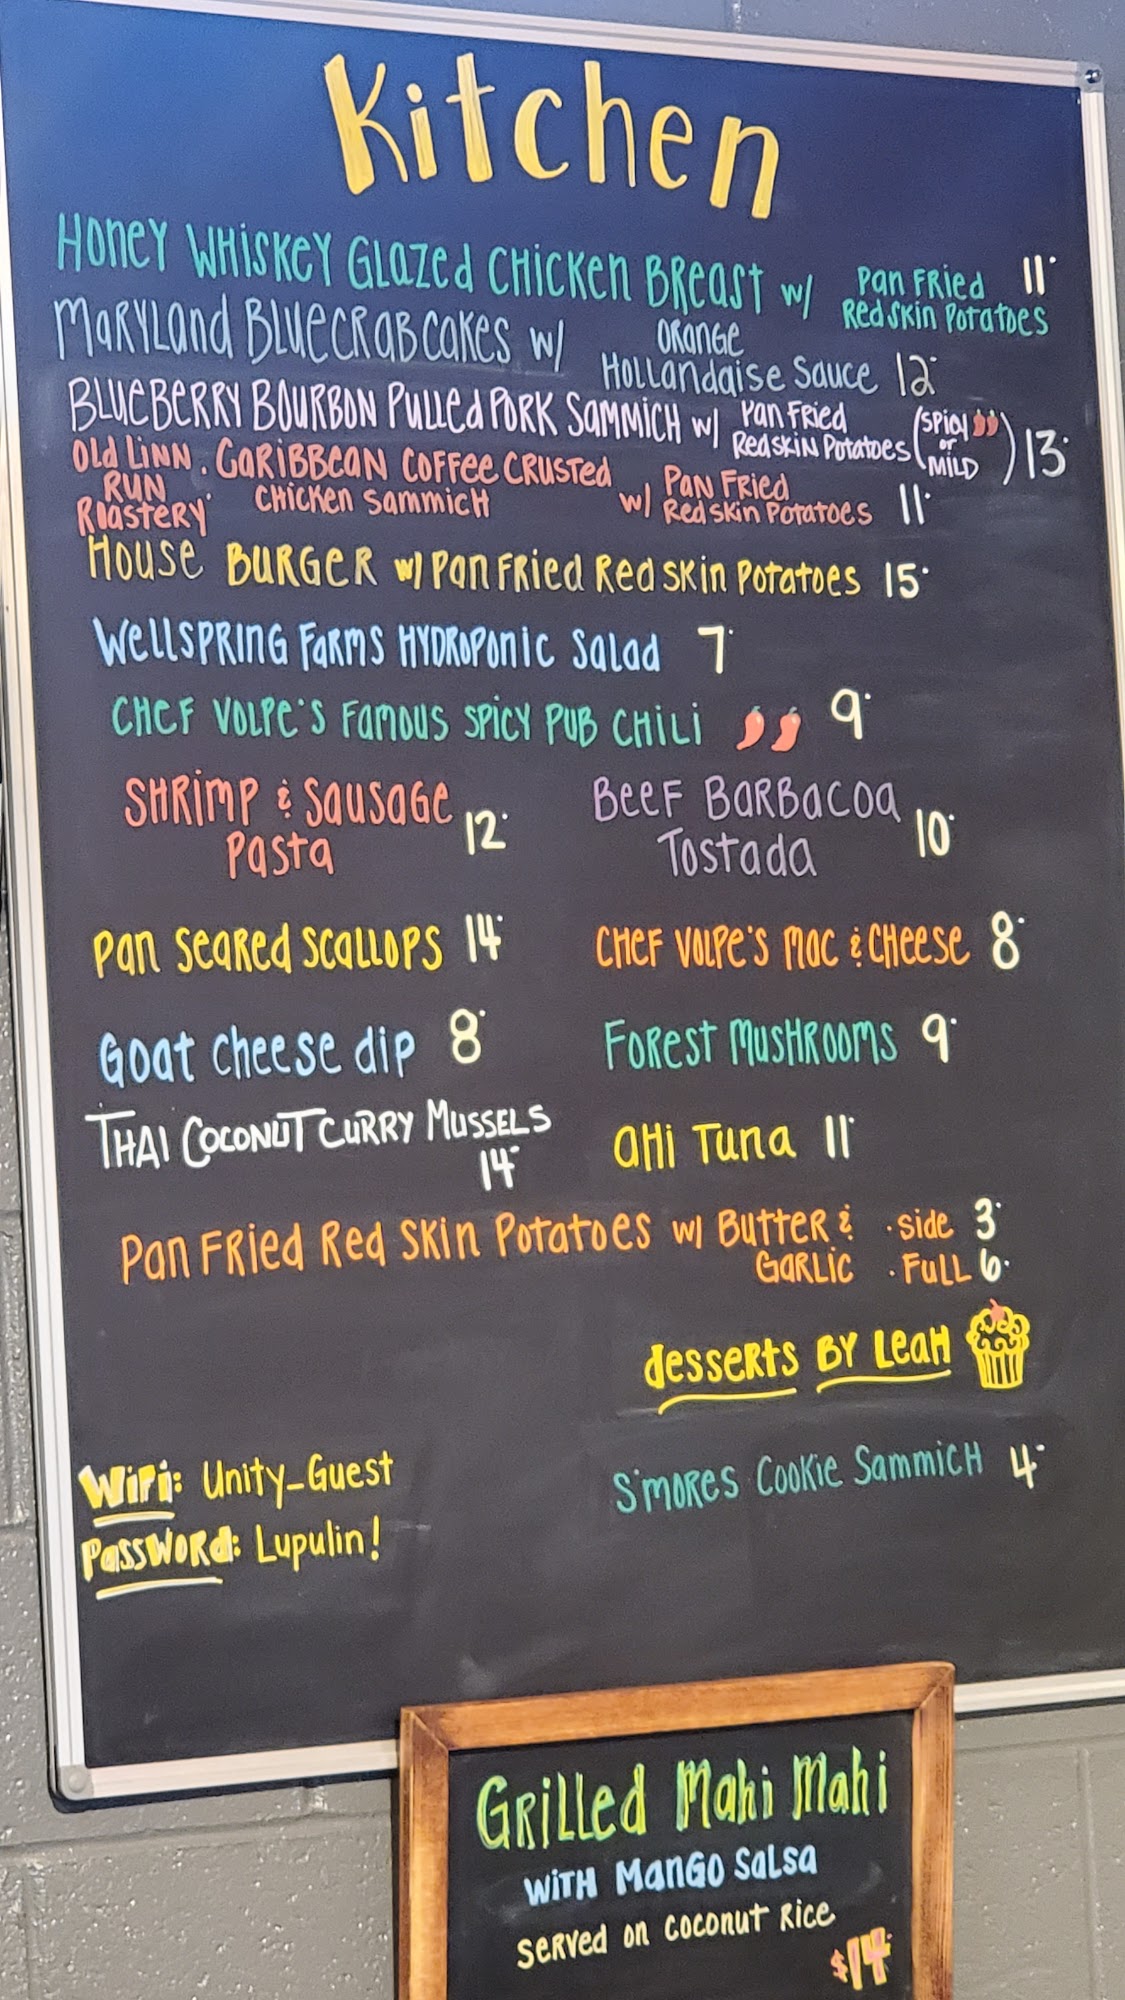 Kitchen
Honey Whiskey Glazed Chicken Breast w/ Pan Fried Red Skin Potatoes 11
Maryland Bluecrab Cakes w/ Orange Hollandaise Sauce 12
Blueberry Bourbon Pulled Pork Sammich w/ Pan Fried Red Skin Potatoes (Spicy or Mild) 13
Old Linn Run Roastery Caribbean Coffee Crusted Chicken Sammich w/ Pan Fried Red Skin Potatoes 11
House Burger w/ Pan Fried Red Skin Potatoes 15
Wellspring Farms Hydroponic Salad 7
Chef Volpe's Famous Spicy Pub Chili 9
Shrimp & Sausage Pasta 12
Beef Barbacoa Tostada 10
Pan Seared Scallops 14
Chef Volpe's Mac & Cheese 8
Goat Cheese dip 8
Forest Mushrooms 9
Thai Coconut Curry Mussels 14
Ahi Tuna 11
Pan Fried Red Skin Potatoes w/ Butter & Garlic
· Side 3
· Full 6
desserts By Leah
S'mores Cookie Sammich 4
WiFi: Unity_Guest
Password: Lupulin!
Grilled Mahi Mahi
with Mango Salsa
Served on Coconut Rice
$14